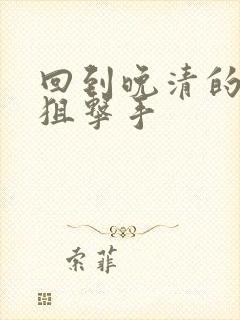 回到晚清的
狙撃手
索菲